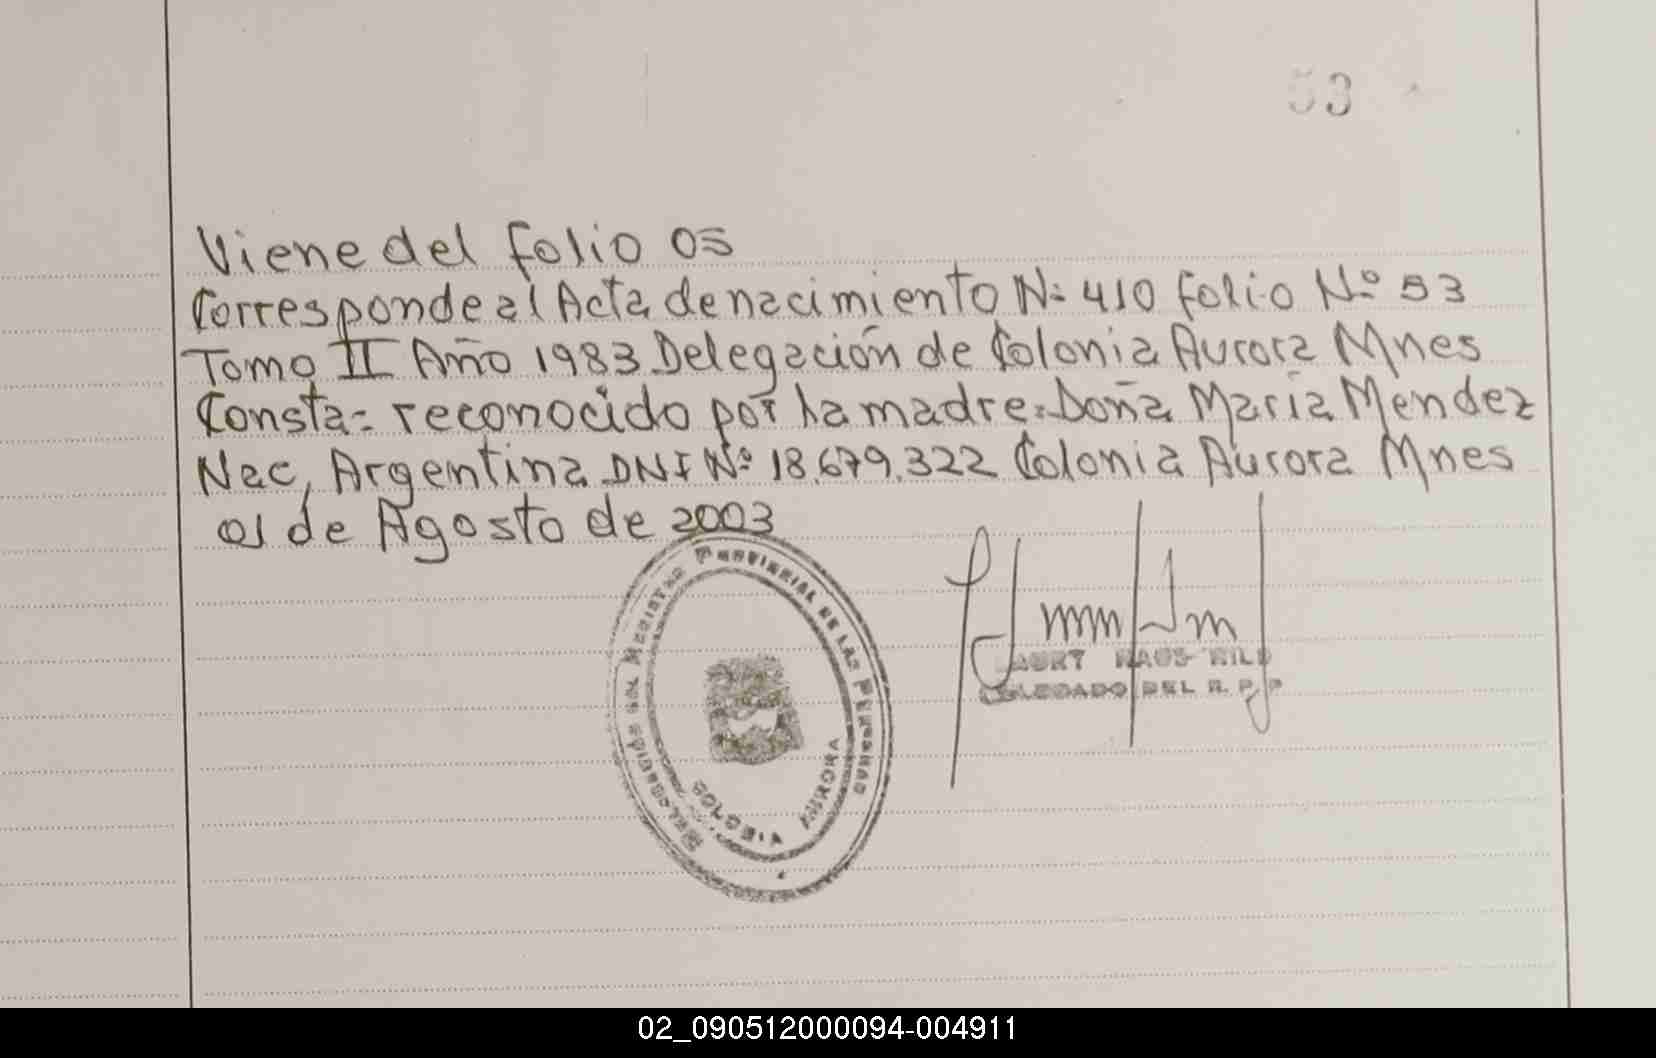 53
Viene del folio 05
Corresponde al Acta de nacimiento Nº 410 folio Nº 53
Tomo II Año 1983 Delegación de Colonia Aurora Mnes
Consta = reconocido por la madre. Doña María Mendez
Nac, Argentina DNI Nº 18.679.322 Colonia Aurora Mnes
01 de Agosto de 2003
PROVINCIAL DE LAS PERSONAS
AURORA
DELEGADO DEL R. P. P
02_090512000094-004911